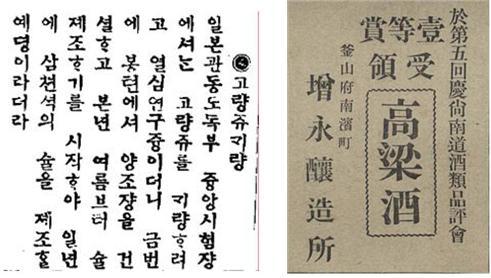 ◉고량쥬기량
일본관동도독부 중앙시험쟝
에셔는 고량쥬를 기량ᄒᆞ려
고 열심연구즁이더니 금번
에 봉텬에셔 양조쟝을 건
셜ᄒᆞ고 본년 여름브터 슐
제조ᄒᆞ기를 시작ᄒᆞ야 일년
에 삼쳔셕의 슐을 제조ᄒᆞᆯ
예뎡이라더라
於第五回慶尚南道酒類品評會
壹等賞
受領
高梁酒
釜山府南濱町
增永釀造所